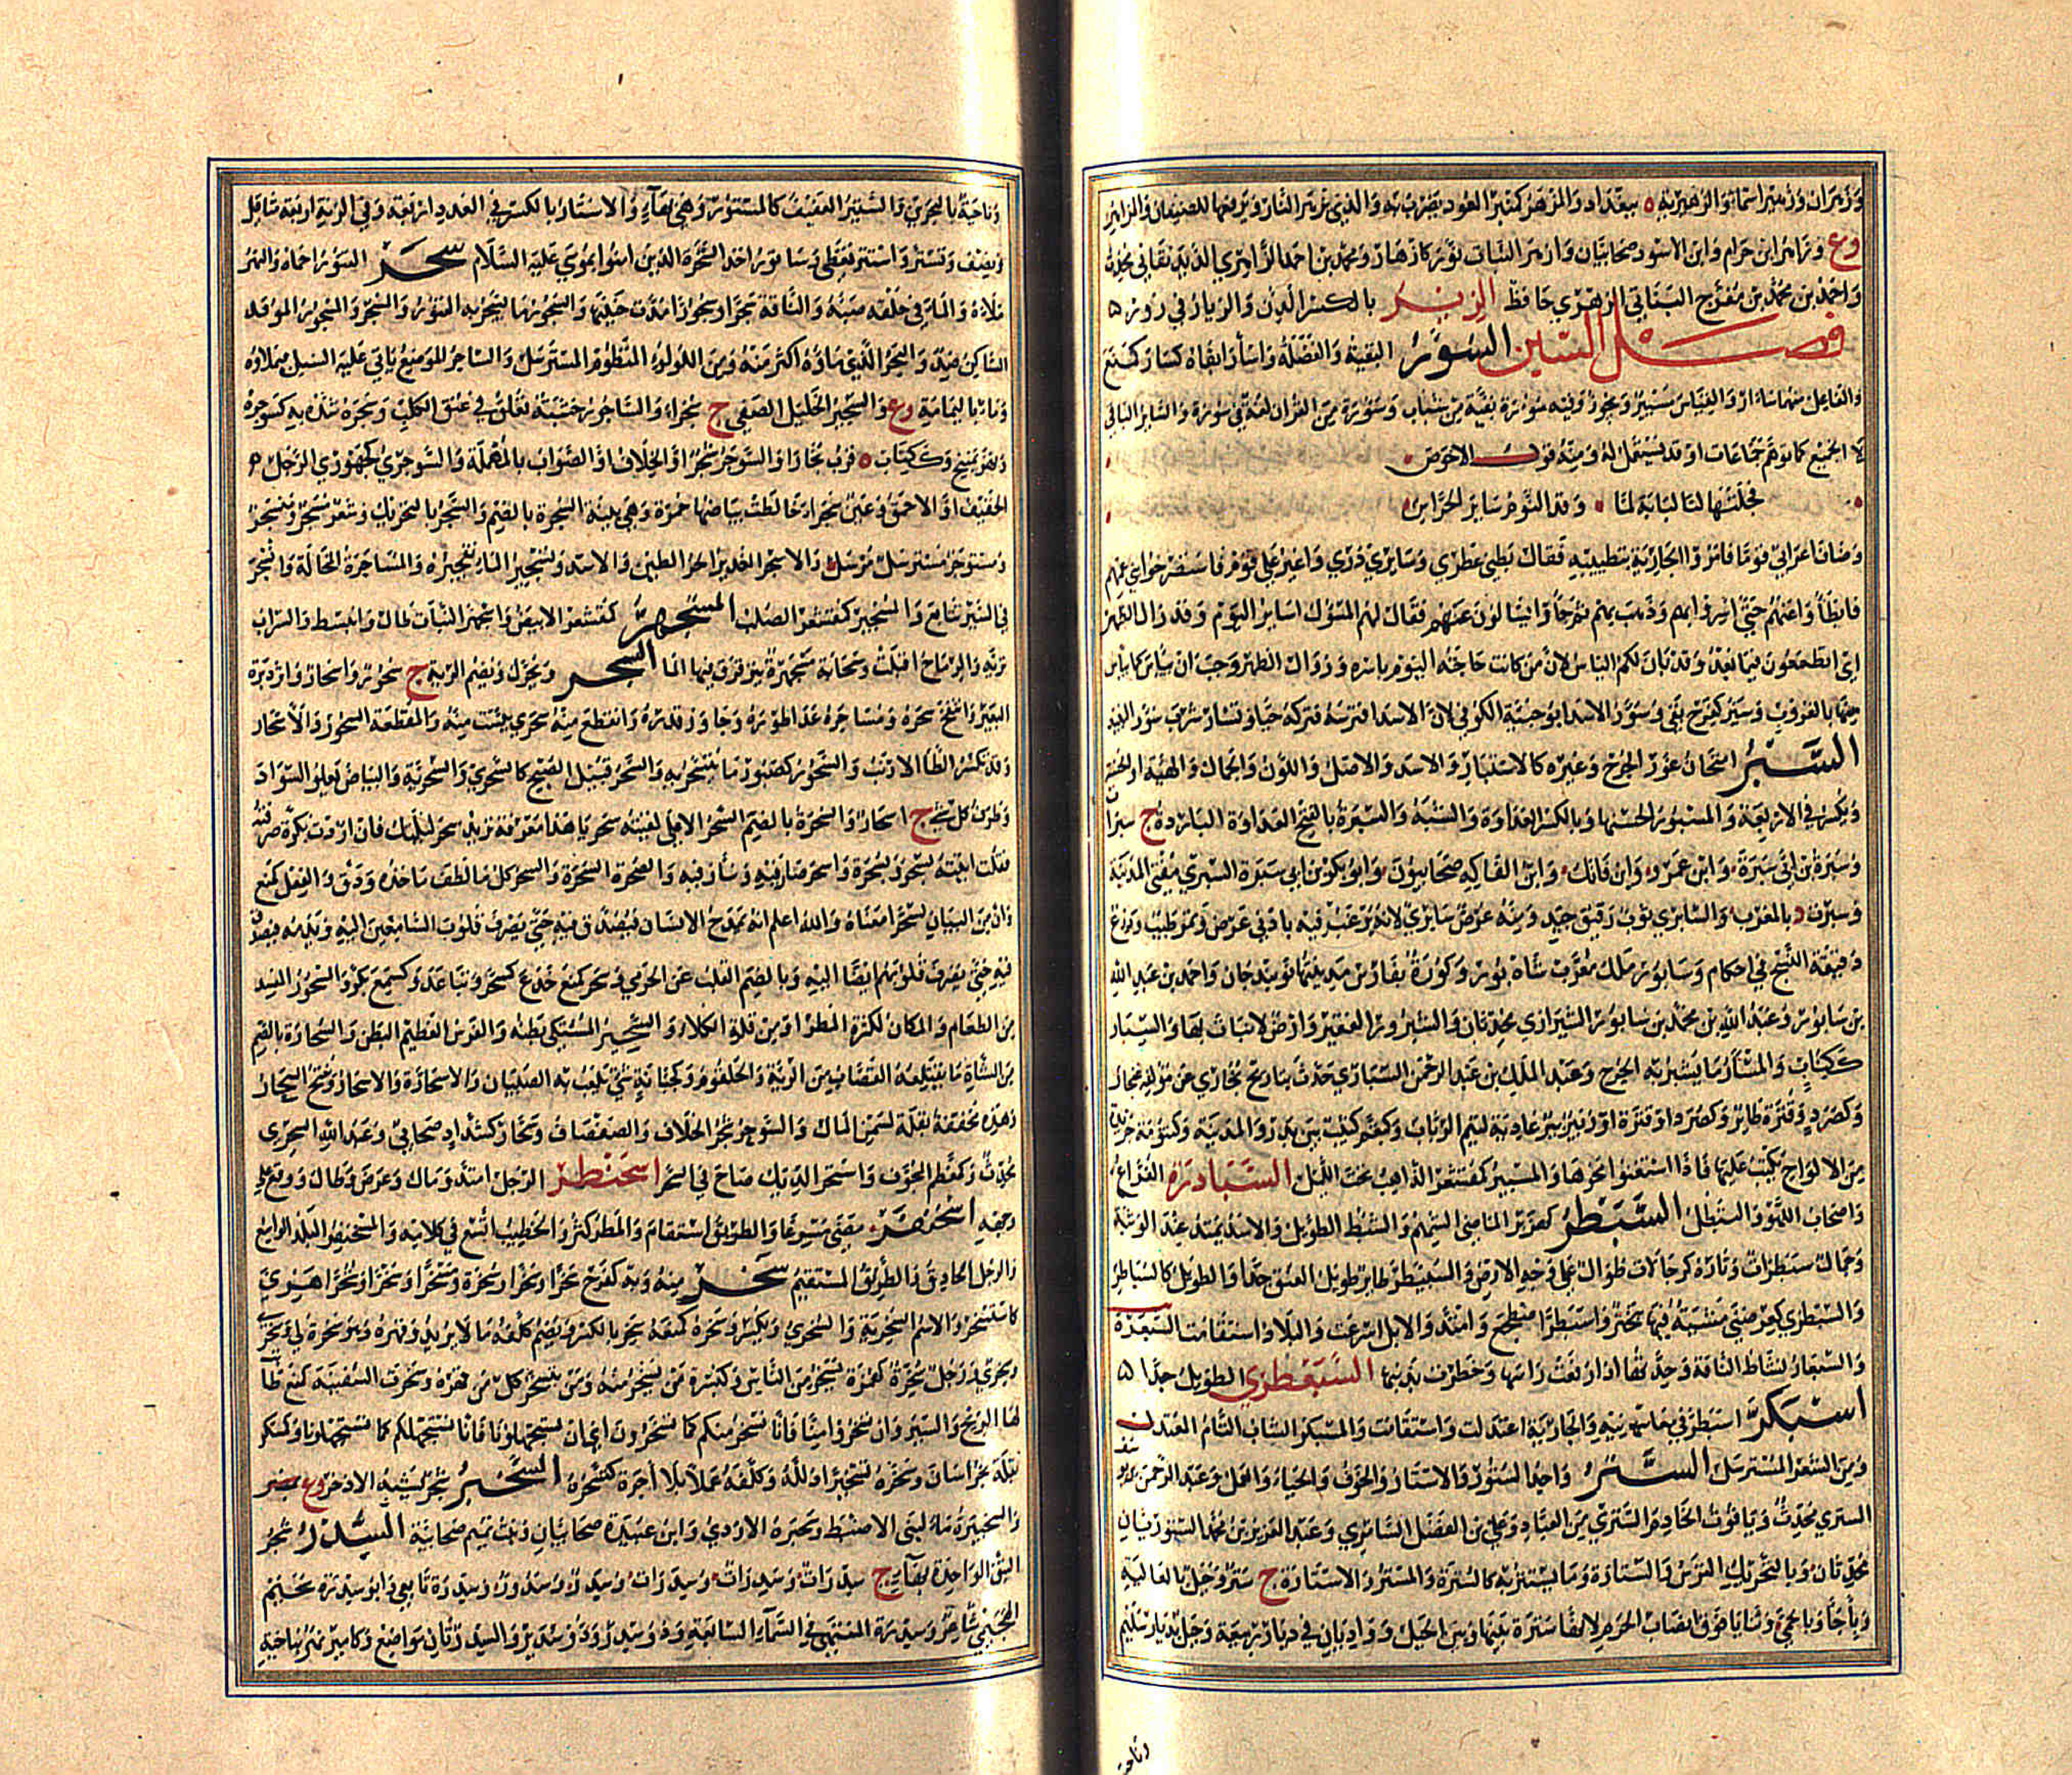 وزهران وزهير اسماء والزهيرية ببغداد والمزهر كمنبر العود يضرب به والذي يزهر النار ويرفعها للضيفان والمزاهر
ع وزاهر ابن حرام وابن الاسود صحابيان وازهر النبات نور كازهار ومحمد بن احمد الزاهري
واحمد بن محمد بن مفرج النباتي الزهري حافظ الزير بالكسر الدن والزيار في زور
فصل السين السؤر البقية والفضلة واسأر ابقاه كسأر كمنع
والفاعل منهما سأر والقياس مسئر ويجوز وفيه سؤرة بقية من شباب وسورة من القران لغة في سورة والسائر الباقي
لا الجميع كما توهم جماعات او قد يستعمل له ومنه قول الاحوص
فجلتها لنا لبابة لما وقد النوم سائر الحراس
وضاف اعرابي قوما فامروا الجارية بتطييبه فقال بطني عطري وسائري ذري واغير على قوم فاستصرخوا بني عمهم
فابطأوا عنهم حتى اسروا وذهب بهم ثم جاؤا يسألون عنهم فقال لهم المسؤل اسائر اليوم وقد زال الظهر
اي اتطمعون فيما بعد وقد تبين لكم الياس لان من كانت حاجته اليوم باسره وزوال الظهر وجب ان ييأس كما ييأس
منها بالغروب وسئر كفرح بقي وسؤر الاسد ابو خبيئة الكوفي لان الاسد افترسه فتركه حيا وتسأر شرب سؤر النبيذ
السبر امتحان غور الجرح وغيره كالاستبار والاسد والاصل واللون والجمال والهيئة الحسنة
ويكسر في الاربعة والمسبور الحسنها وبالكسر العداوة والشبه والسبرة بالفتح الغداة الباردة ج سبرات
وسبرة بن ابي سبرة وابن عمرو وابن فاتك وابن الفاكه صحابيون وابو بكر بن ابي سبرة السبري مفتي المدينة
وسبرت د بالمغرب والسابري ثوب رقيق جيد ومنه عرض سابري لانه يرغب فيه بادنى عرض وتمر طيب ودرع
دقيقة النسج في احكام وسابور ملك معرب شاه بور وكورة بفارس مدينتها نوبندجان واحمد بن عبد الله
بن سابور وعبد الله بن محمد بن سابور الشيرازي محدثان والسبرور الفقير وارض لا نبات بها والسبار
ككتاب والمسبار ما يسبر به الجرح وعبد الملك بن عبد الرحمن السباري حدث بتاريخ بخارى عن مؤلفه غنجار
وكصرد وقترة طائر وكصرد او قترة او زبير بئر عادية لتيم الرباب وكبقم كثيب بين بدر والمدينة وكتنومة جريدة
من الالواح يكتب عليها فاذا استغنوا محوها والمسبئر كمقشعر الذاهب تحت الليل السبادرة الفراغ
واصحاب اللهو والتبطل السبطر كهزبر الماضي الشهم والسبط الطويل والاسد يمتد عند الوثبة
وجمال سبطرات وتاؤه كرجالات طوال على وجه الارض والسبيطر طائر طويل العنق جدا والطويل كالسباطر
والسبطري كعرضني مشية فيها تبختر واسبطر اضطجع وامتد والابل اسرعت والبلاد استقامت السبعرة
والسبعار نشاط الناقة وحدتها اذا رفعت راسها وخطرت بذنبها السبعطري الطويل جدا
اسبكر اسبطر في معانيه والجارية اعتدلت واستقامت والمسبكر الشاب التام المعتدل
ومن الشعر المسترسل الستر واحد الستور والاستار والخوف والحياء والعمل وعبد الرحمن بن يوسف
الستري محدث وياقوت الخادم الستري من العباد وعلي بن الفضل السامري وعبد العزيز بن محمد الستوريان
محدثان وبالتحريك الترس والستارة وما يستتر به كالسترة والمستر والاستارة ج ستر وجبل بالعالية
وباجأ وبالحمى وثنايا فوق انصاب الحرم لانها سترة بينها وبين الحل وواديان في ديار ربيعة وجبل بديار سليم
وناحية
وناحية بالبحرين والستير العفيف كالمستور وهي بهاء والاستار بالكسر في العدد اربعة وفي الزنة اربعة مثاقيل
ونصف وتستر واستتر تغطى وساتور احد السحرة الذين امنوا بموسى عليه السلام سجر التنور احماه والنهر
ملأه والماء في حلقه صبه والناقة سجرا وسجورا مدت حنينها والسجور ما يسجر به التنور والمسجر والمسجور الموقد
الساكن ضد والبحر الذي ماؤه اكثر منه ومن اللؤلؤ المنظوم المسترسل والساجر الموضع ياتي عليه السيل فيملأه
وماء باليمامة وع والسجير الخليل الصفي ج سجراء والساجور خشبة تعلق في عنق الكلب وسجره شده به كسوجره
ونهر بمنبج وككتاب قرب بخارا والسوجر شجر او الخلاف او الصواب بالمهملة والسوجري كجوهري الرجل
الخفيف او الاحمق وعين سجراء خالطت بياضها حمرة وهي بينة السجرة بالضم والسجر بالتحريك وشعر مسجر ومنسجر
ومسوجر مسترسل مرسل والاسجر الغدير الحر الطين والاسد وتسجير الماء تفجيره والمساجرة المخالة وانسجر
في السير تتابع والمسجئر كمقشعر الصلب المسجهر كمقشعر الابيض واسجهر النبات طال وانبسط والسراب
تريه والرماح اقبلت وسحابة مسجهرة يترقرق فيها الماء السحر ويحرك ويضم الرئة ج سحور واسحار واثر دبرة
البعير وانتفخ سحره ومساحره عدا طوره وجاوز قدره وانقطع منه سحري يئست منه والمقطعة السحور والاسحار
وقد تكسر الطاء الارنب والسحور كصبور ما يتسحر به والسحر قبيل الصبح كالسحري والسحرية والبياض يعلو السواد
وطرف كل شيء ج اسحار والسحرة بالضم السحر الاعلى لقيته سحر يا هذا معرفة تريد سحر ليلتك فان اردت نكرة صرفته
فقلت اتيته بسحر وبسحرة واسحر صار فيه وسار فيه والسحرة السحرة والسحر كل ما لطف ماخذه ودق والفعل كمنع
وان من البيان لسحرا معناه والله اعلم انه يمدح الانسان فيصدق فيه حتى يصرف قلوب السامعين اليه ويذمه فيصدق
فيه حتى يصرف قلوبهم ايضا اليه وبالضم القلب عن الجرمي وسحر كمنع خدع كسحر وتباعد وكسمع بكر والمسحور المفسد
من الطعام والمكان لكثرة المطر او من قلة الكلا والسحير المشتكي بطنه والفرس العظيم البطن والسحارة بالضم
من الشاة ما يقتلعه القصاب من الرئة والحلقوم وكجبانة شيء تلعب به الصبيان والاسحارة والاسحار ويفتح السحار
وهذه مخففة بقلة تسمن المال والسوحر شجر الخلاف والصفصاف وسحار كشداد صحابي وعبد الله السحري
محدث وكمعظم المجوف واستحر الديك صاح في السحر اسحنطر الرجل امتد ومال وعرض وطال ووقع على
وجهه اسحنفر مضى مسرعا والطريق استقام والمطر كثر والخطيب اتسع في كلامه والمسحنفر البلد الواسع
والرجل الحاذق والطريق المستقيم سخر منه وبه كفرح سخرا وسخرا وسخرة ومسخرا وسخرا وسخرا هزئ
كاستسخر والاسم السخرية والسخري ويكسر وسخره كمنعه سخريا بالكسر ويضم كلفه ما لا يريد وقهره وهو سخرة لي وسخري
وسخري ورجل سخرة كهمزة يسخر من الناس وكبسرة من يسخر منه ومن يتسخر كل من قهره وسخرت السفينة كمنع طاب
لها الريح والسير وان تسخروا منا فانا نسخر منكم كما تسخرون اي ان تستجهلونا فانا نستجهلكم كما تستجهلونا وكسكر
بقلة بخراسان وسخره تسخيرا ذلله وكلفه عملا بلا اجرة كتسخره السخبر شجر يشبه الاذخر وع
والسخيبرة ماء لبني الاضبط وسخبرة الازدي وابن عبيدة صحابيان وبنت تميم صحابية السدر شجر
النبق الواحدة بهاء ج سدرات وسدرات وسدرات وسدر وسدور وسدرة تابعي وابو سدرة سحيم
الهجيمي شاعر وسدرة المنتهى في السماء السابعة وذو سدر وذو سدير والسدرتان مواضع وكامير نهر بناحية